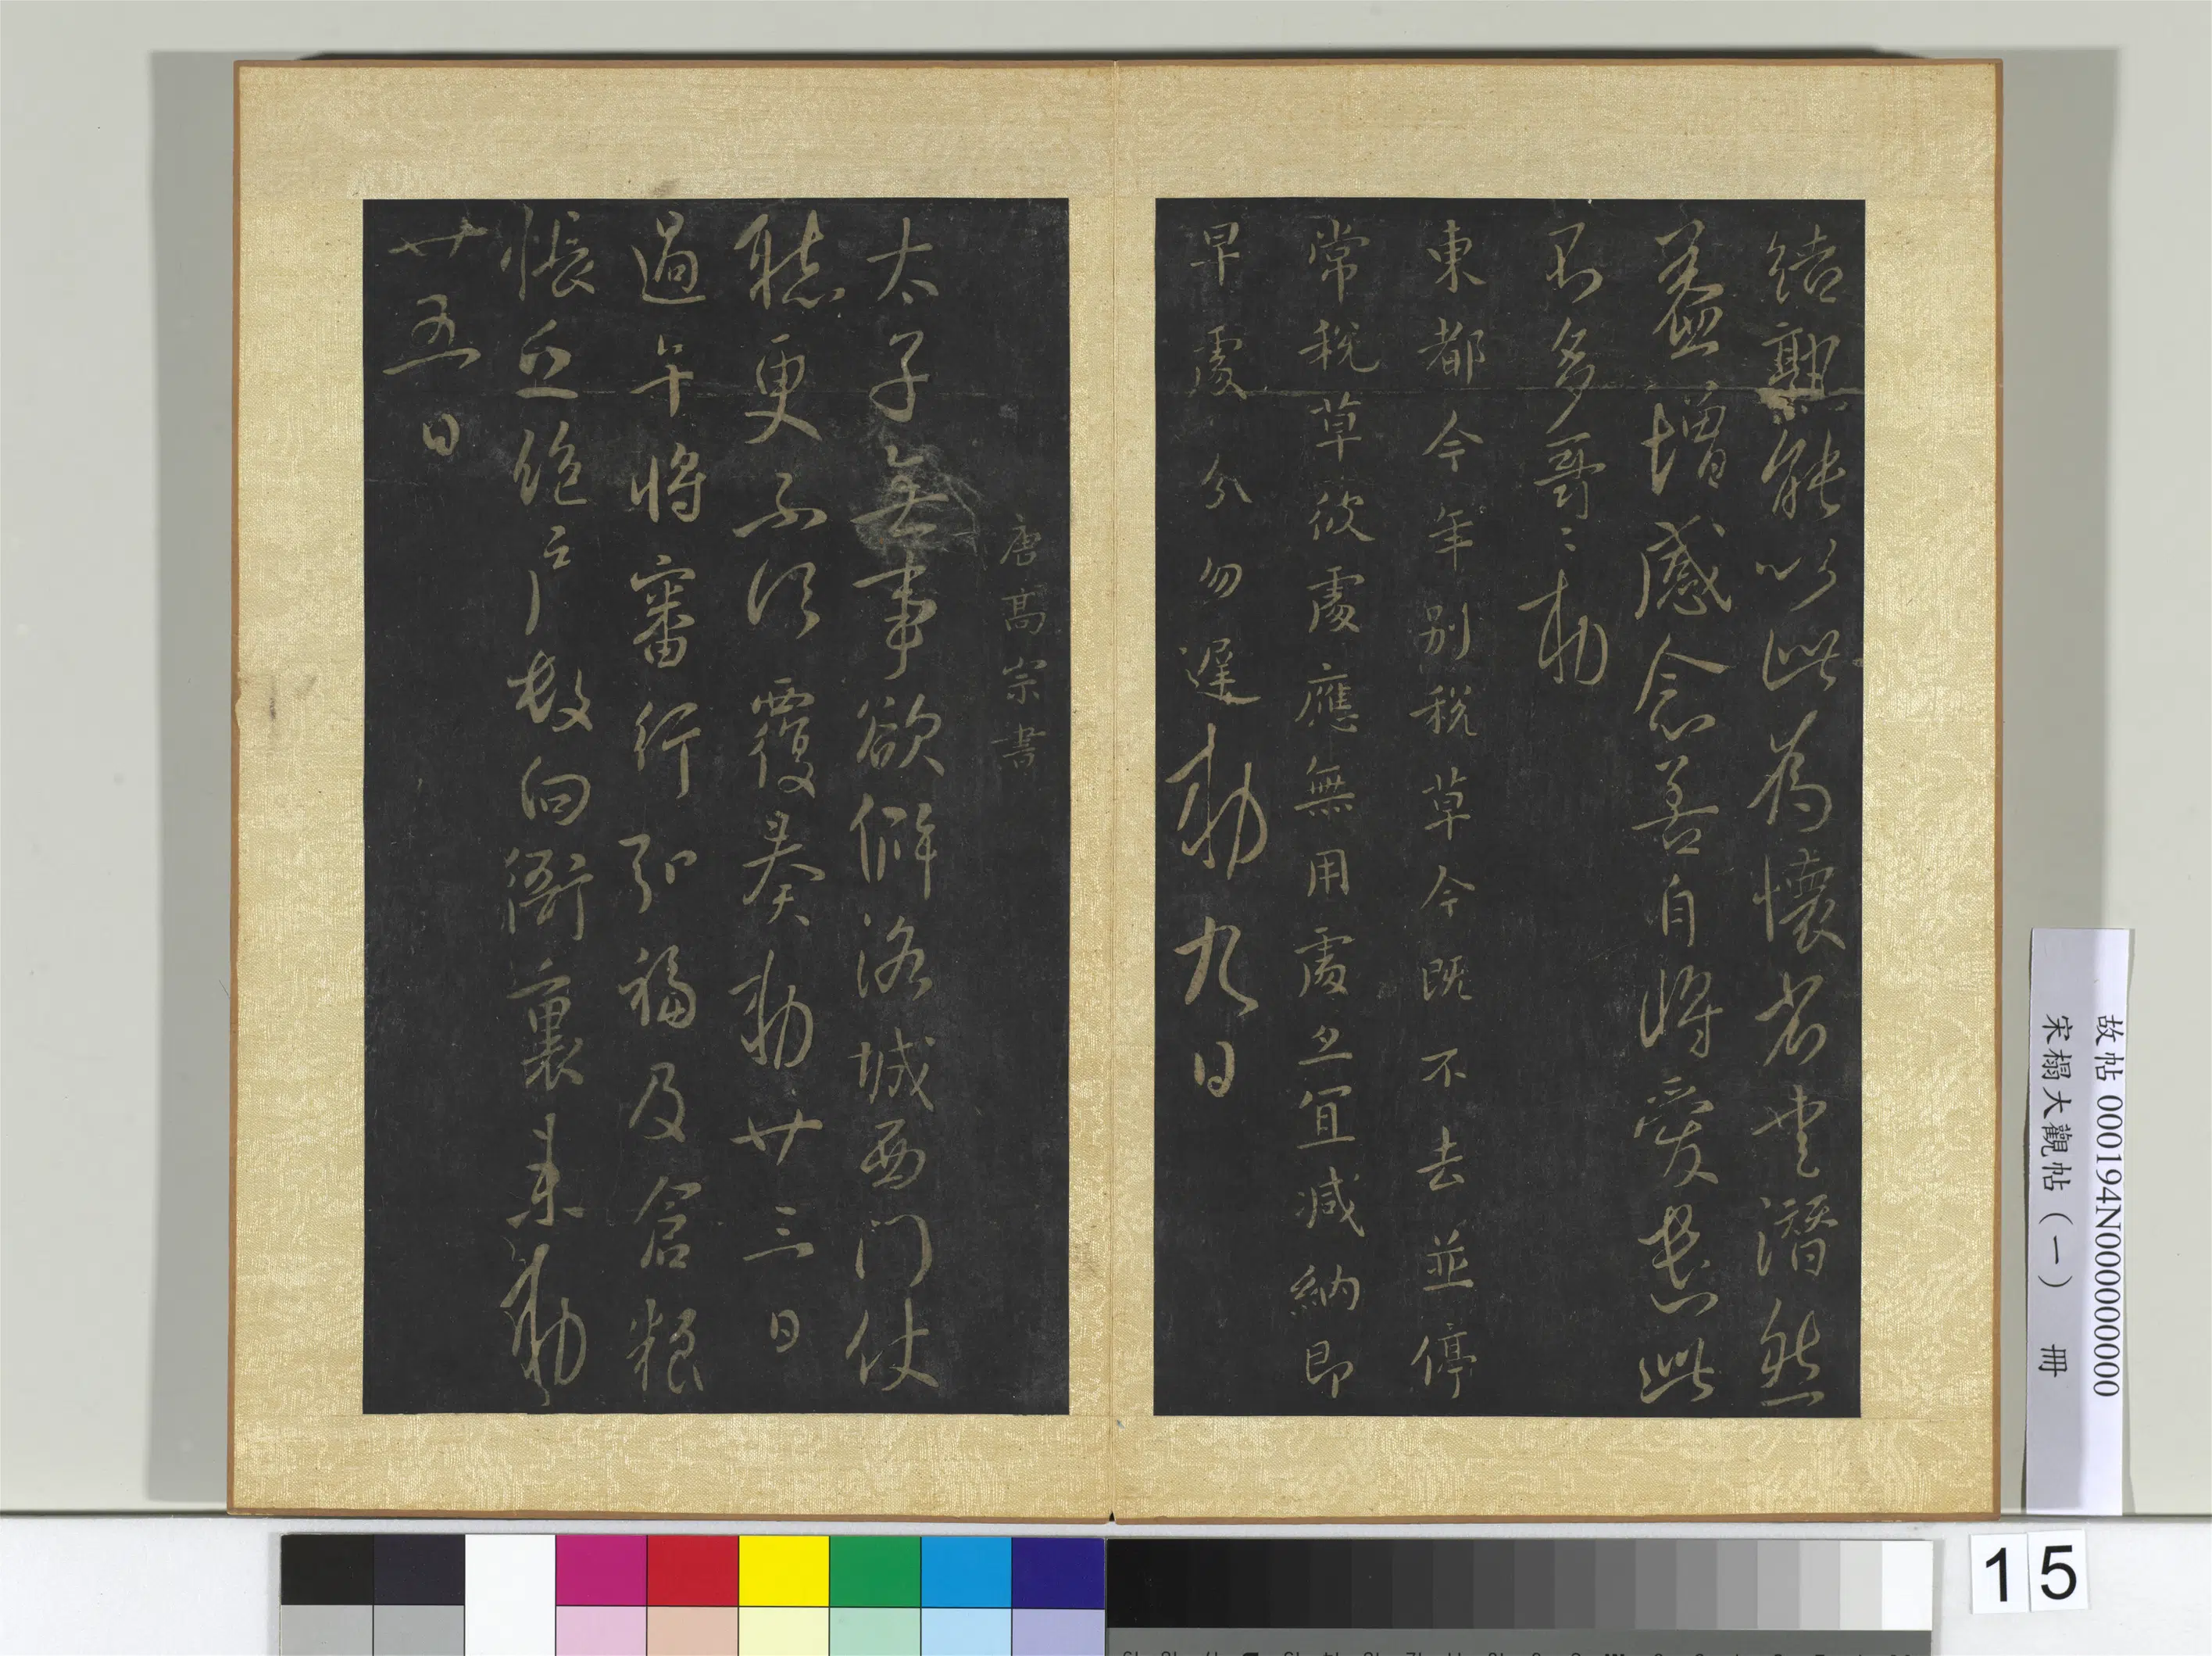 結孰能以此為懷省書潛然
益增感念善自將愛書此
不多哥〻勅
東都今年別稅草今既不去並停
常稅草彼處應無用處亦宜減納即
早處分勿遲勅九日
唐高宗書
太子無事欲解洛城西門仗
聽更不須覆奏勅廿三日
過午將審行弘福及倉粮
帳絕戶數向衙裏来勅
廿五日
故帖 000194N000000000
宋榻大觀帖（一） 冊
15